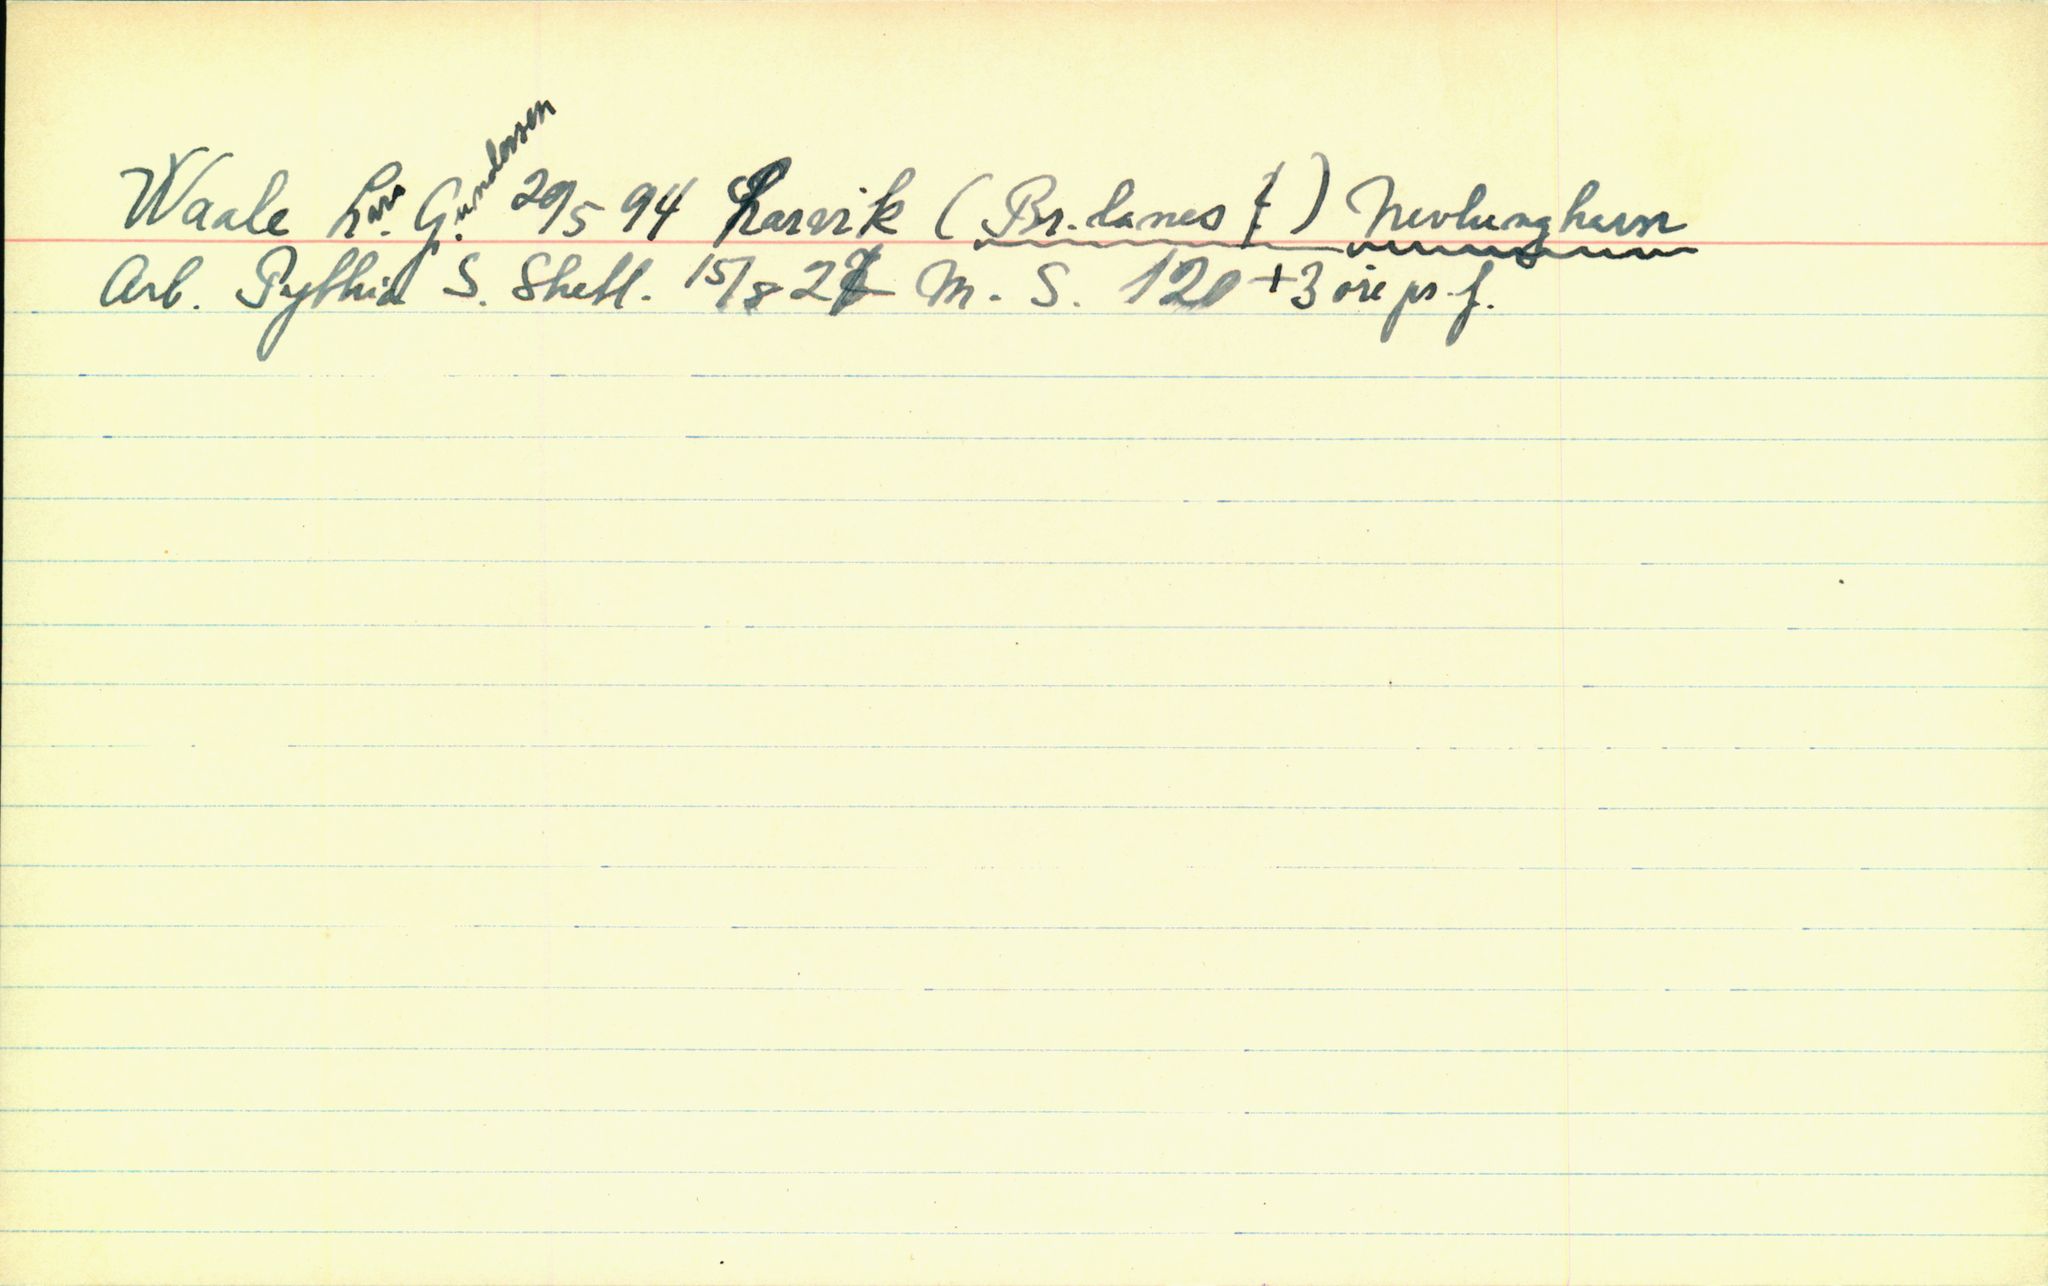 Waale Lars G. Gundersen 20/5 94 Larvik (Br.lanes f) Nevlunghavn
Arb. Pythia S. Shetl. 15/8 2 M. S. 120 + 3 øre pr. f.